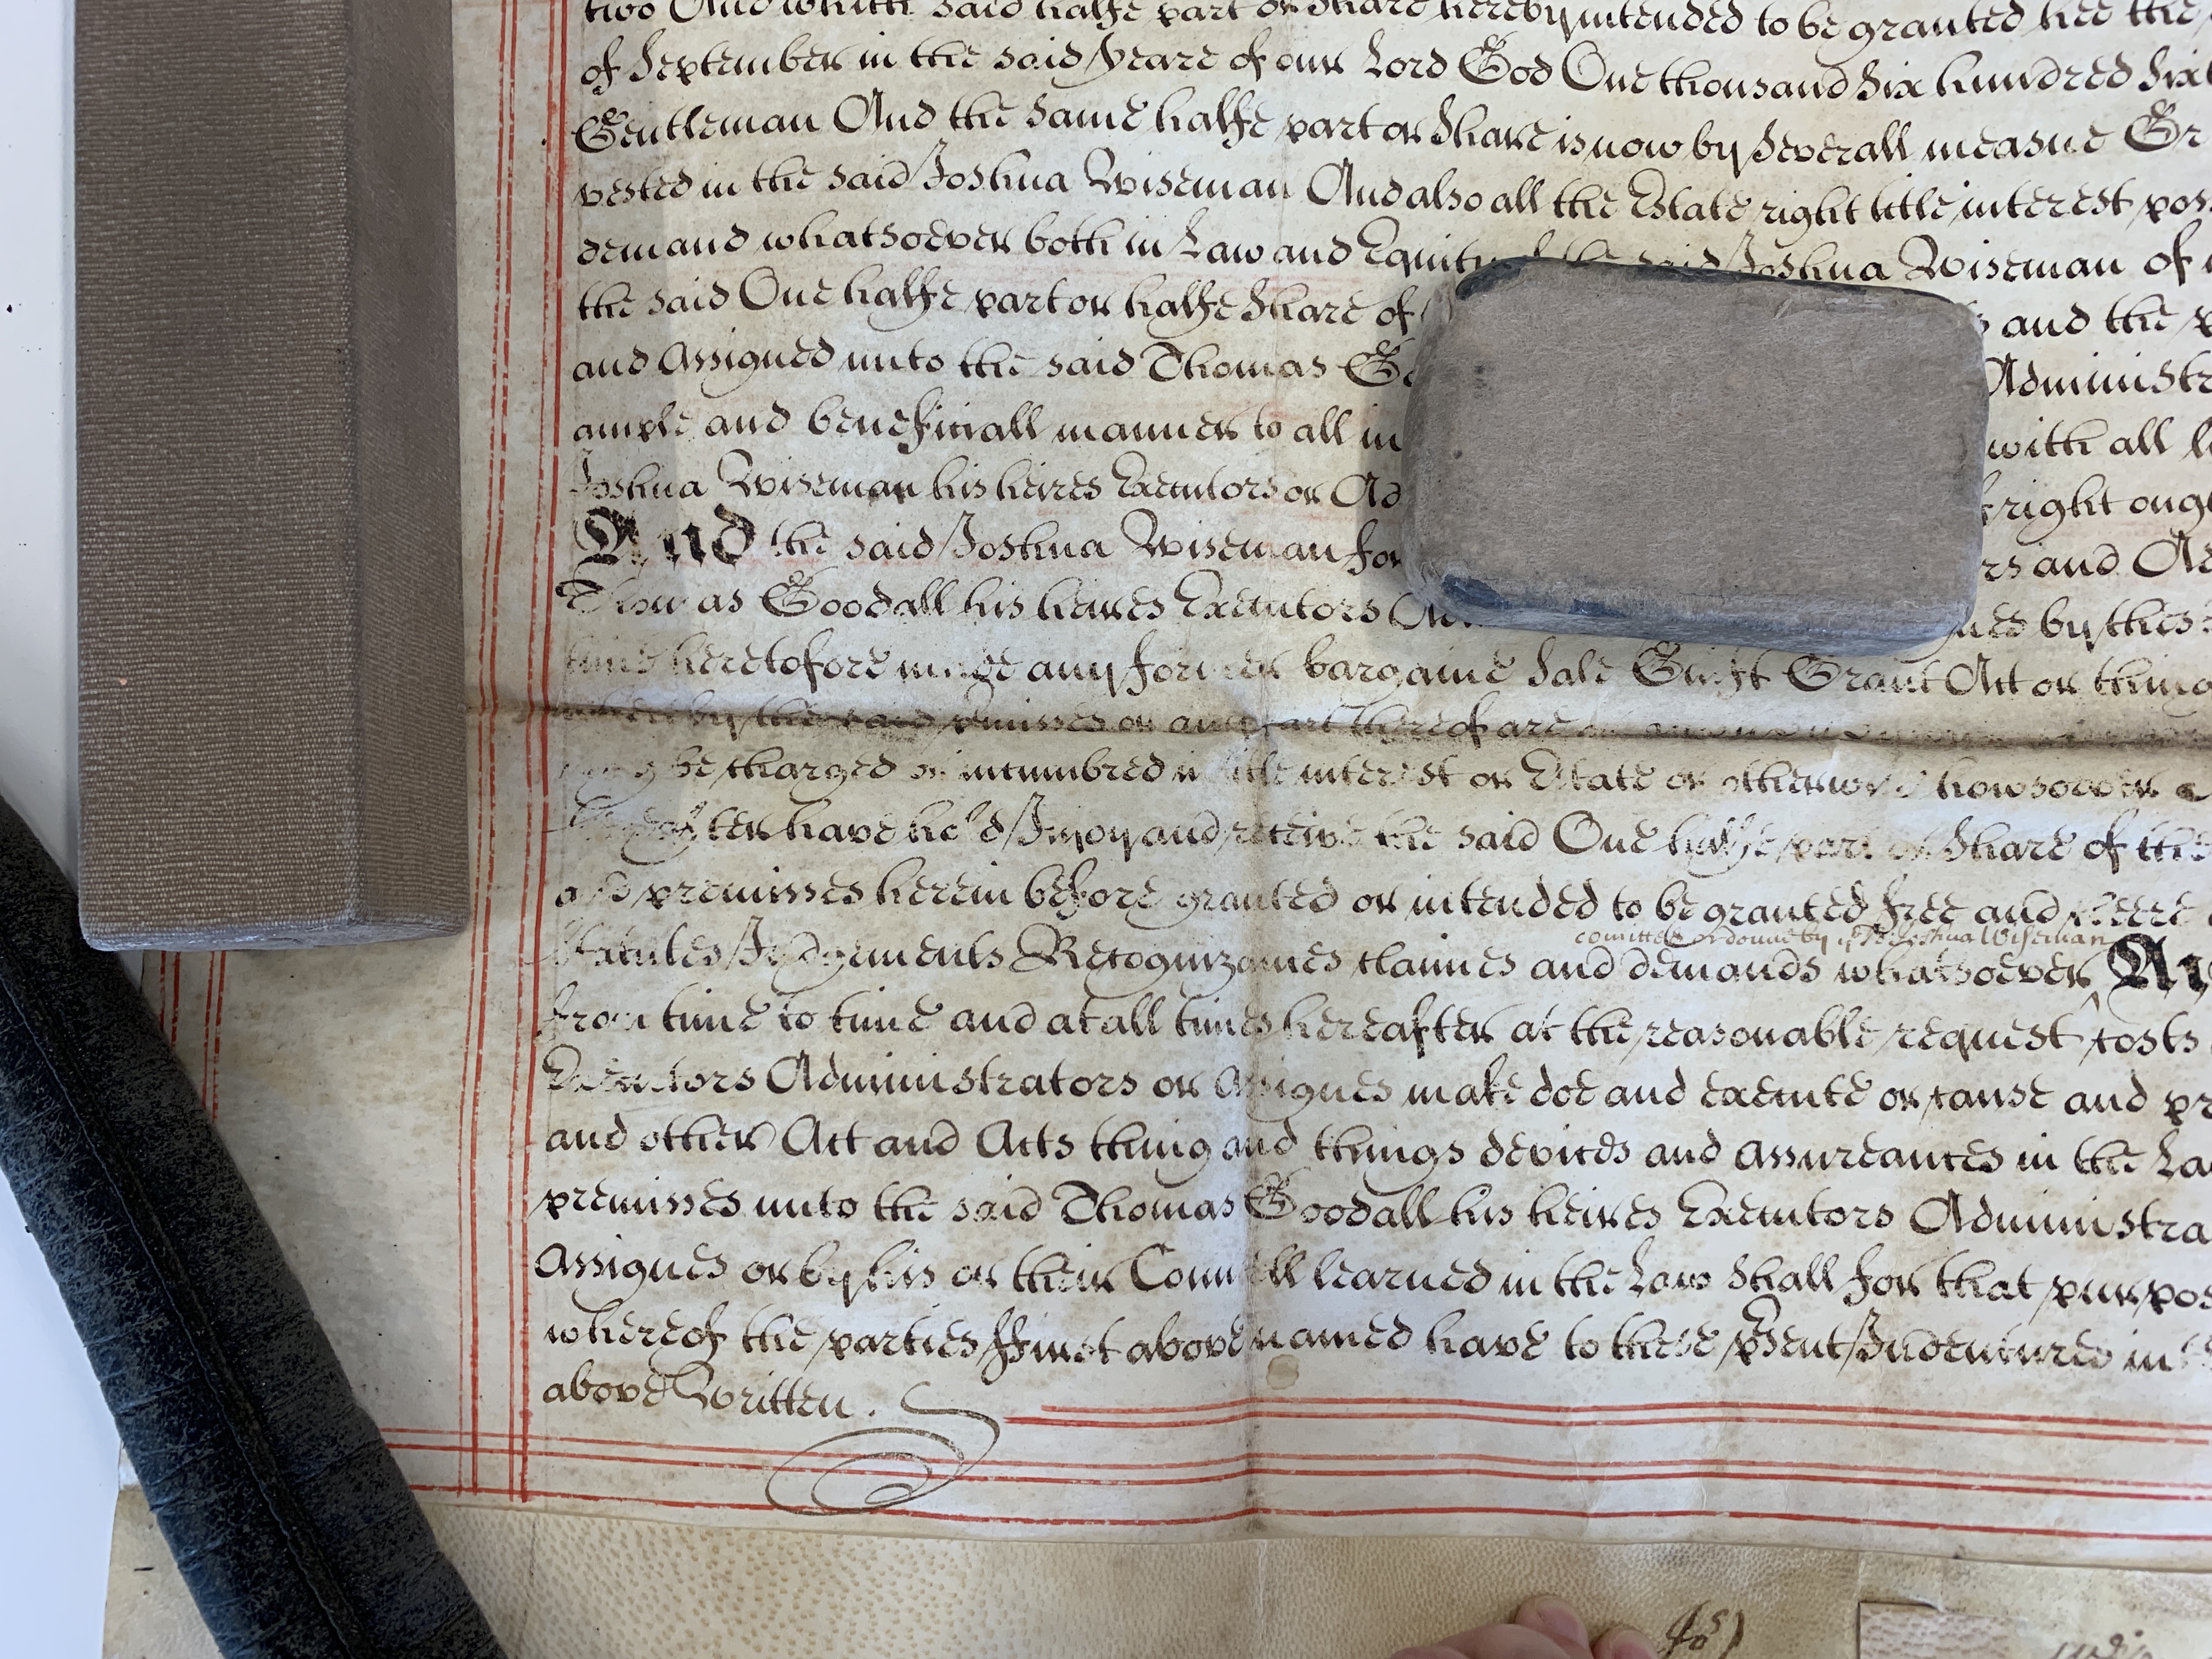 two And which said halfe part or Share hereby intended to be granted hee the
of September in the said yeare of our Lord God One thousand Six hundred Sixt
Gentleman And the same halfe part or Share is now by Severall measne Gr
vested in the said Joshua Wiseman And also all the Estate right title interest pos
demand whatsoever both in Law and Equity of the said Joshua Wiseman of
the said One halfe part or halfe Share of and the
and Assigned unto the said Thomas Go Administr
ample and beneficiall manner to all in with all
Joshua Wiseman his heires Executors or Ad right ough
And the said Joshua Wiseman for rs and Ad
Thomas Goodall his heires Executors Ad by thes
time heretofore made any former bargaine Sale Guift Grant Act or thing
by the said p'misses or any part thereof are
may be charged or incumbred in title interest or Estate or otherwise howsoever
hereafter have hold Injoy and receive the said One halfe part or Share of the
and premisses herein before granted or intended to be granted free and cleere
comitted or donne by ye sd Joshua Wiseman
Statutes Judgements Recognizances claimes and demands whatsoever And
from time to time and at all times hereafter at the reasonable request costs
Executors Administrators or Assignes make doe and execute or cause and pr
and other Act and Acts thing and things devices and assureances in the La
premisses unto the said Thomas Goodall his heires Executors Administra
Assignes or by his or their Councell learned in the Law Shall for that purpos
whereof the parties ffirst above named have to these p'sent Indentures in
above Written.